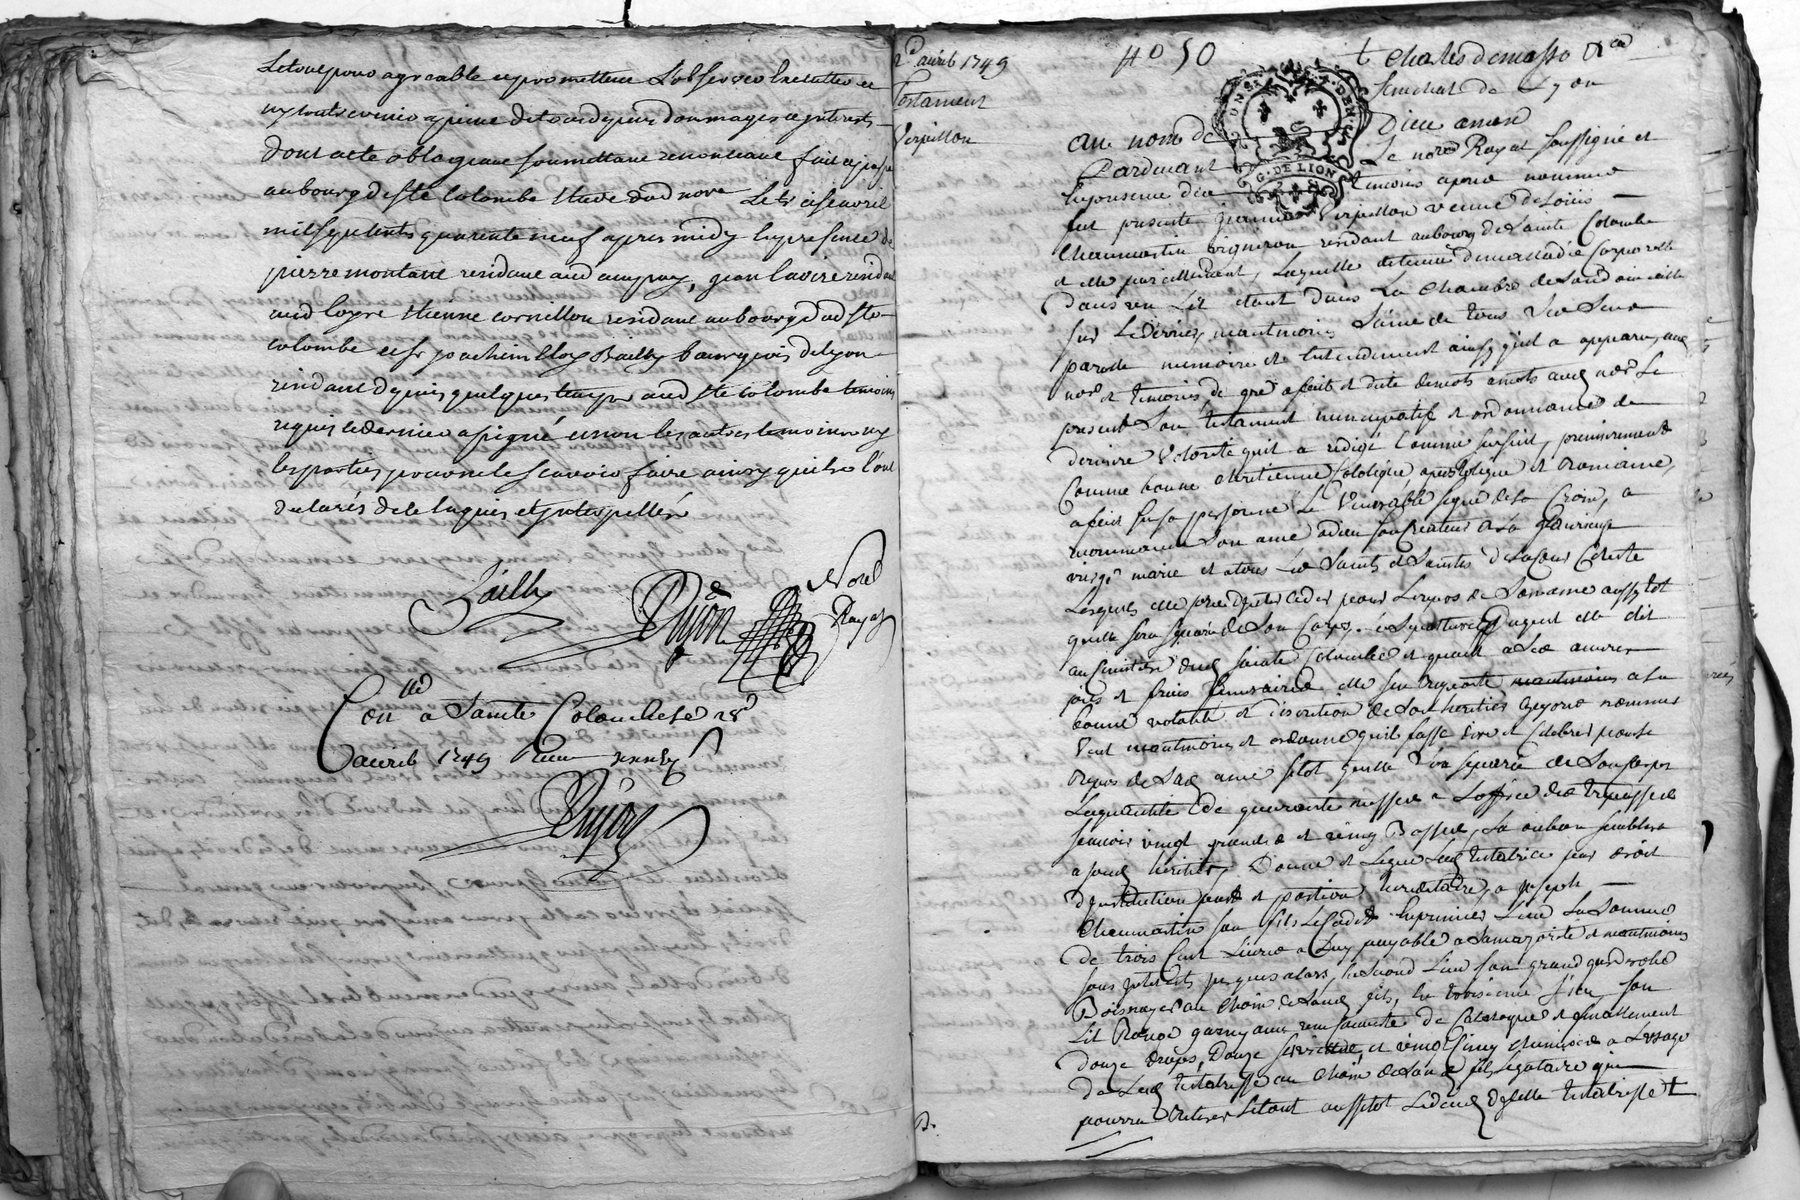 Le tout pour agreable et promettent L'observer
a peine de tous depens dommages interests
dont acte obligeant soumettant renonceant fait et passé
au bourg de Ste Colombe Etude dud nore Le treise avril
mil sept cents quarente neuf apres midy En presence de
pierre montant residant aud ampuy, jean
aud Loyre Etienne cornillon residant au bourg dud Ste
colombe et Sr joachim Eloy Bailly bourgeois de lyon
residant depuis quelques temps aud Ste Colombe temoins
requis le dernier a signé et non les autres temoins ny
les parties pour ne le scavoir faire ainsy quils l'ont
declarés de ce Enquis et Interpellés
Bailly
Dujon
Nore
Rayat
Con a Sainte Colombe le 18e
avril 1749 Receu
Dujon
2e avril 1749
Testament
Verpillon
No 50
t Charles de masso
Senechal de Lyon
G. DE LION
au nom de Dieu amen
Pardevant Le nore Royal soussigné et
En presence des temoins apres nommes
fut presente Verpillon veuve de Loüis
Chaumartin vigneron residant au bourg de Sainte Colombe
et elle pareillement, Laquelle detenue de maladie Corporelle
dans un Lit etant dans La Chambre de Son domicille
Saine de tous Ses Sens
parolle memoire et Entendement ainsy quil a apparu aux
nore et temoins de gré a fait et dicté de mots a mots aud nore Le
present Son testament nuncupatif et ordonnance de
derniere Volonté quil a redigé Comme Sensuit, premierement
Comme bonne chretienne Catolique, apostolique et Romaine,
a fait sur sa personne Le Venerable signe de la Croix, a
recommandé Son ame a dieu Son Createur a La glorieuse
vierge marie et a tous Les Saints et Saintes de La Cour Celeste
Lesquels elle prie Interceder pour Le repos de Son ame aussytot
quelle sera separée de Son Corps. Sepulture elle dit
au Cimetiere dud Sainte Colombe et quant a Ses aumones
et frais funeraires elle Sen raporte a La
bonne volonté et discretion de Son heritier Cy apres nommé
Veut neantmoins et ordonne quil fasse dire et Celebrer pour Le
repos de Sad ame sitot quelle Sera separée de Son Corps
La quantité de quarante messes a Loffice des trepasses
scavoir vingt grandes et vingt Basses, La ou bon semblera
a sond heritier, Donne et Legue Lad testatrice par droit
d'Institution part et portion hereditaire, a joseph
Chaumartin son fils Le Cadet En premier Lieu La Somme
de trois Cent Livres a Luy payable a Sa majorité et neantmoins
sans Interets jusques alors, En second Lieu son grand garderobe
Boisnoyer au Choix de Sond fils, En troisieme Lieu son
Lit Rouge garny avec une Couverte de Catalogne et finallement
douze draps, Douze serviettes, et vingt Cinq chemises a Lusage
de Lad testatrisse au Choix de Sond fils Legataire qui
pourra retirer Le tout aussitot Le deces de Lad testatrisse t
B.